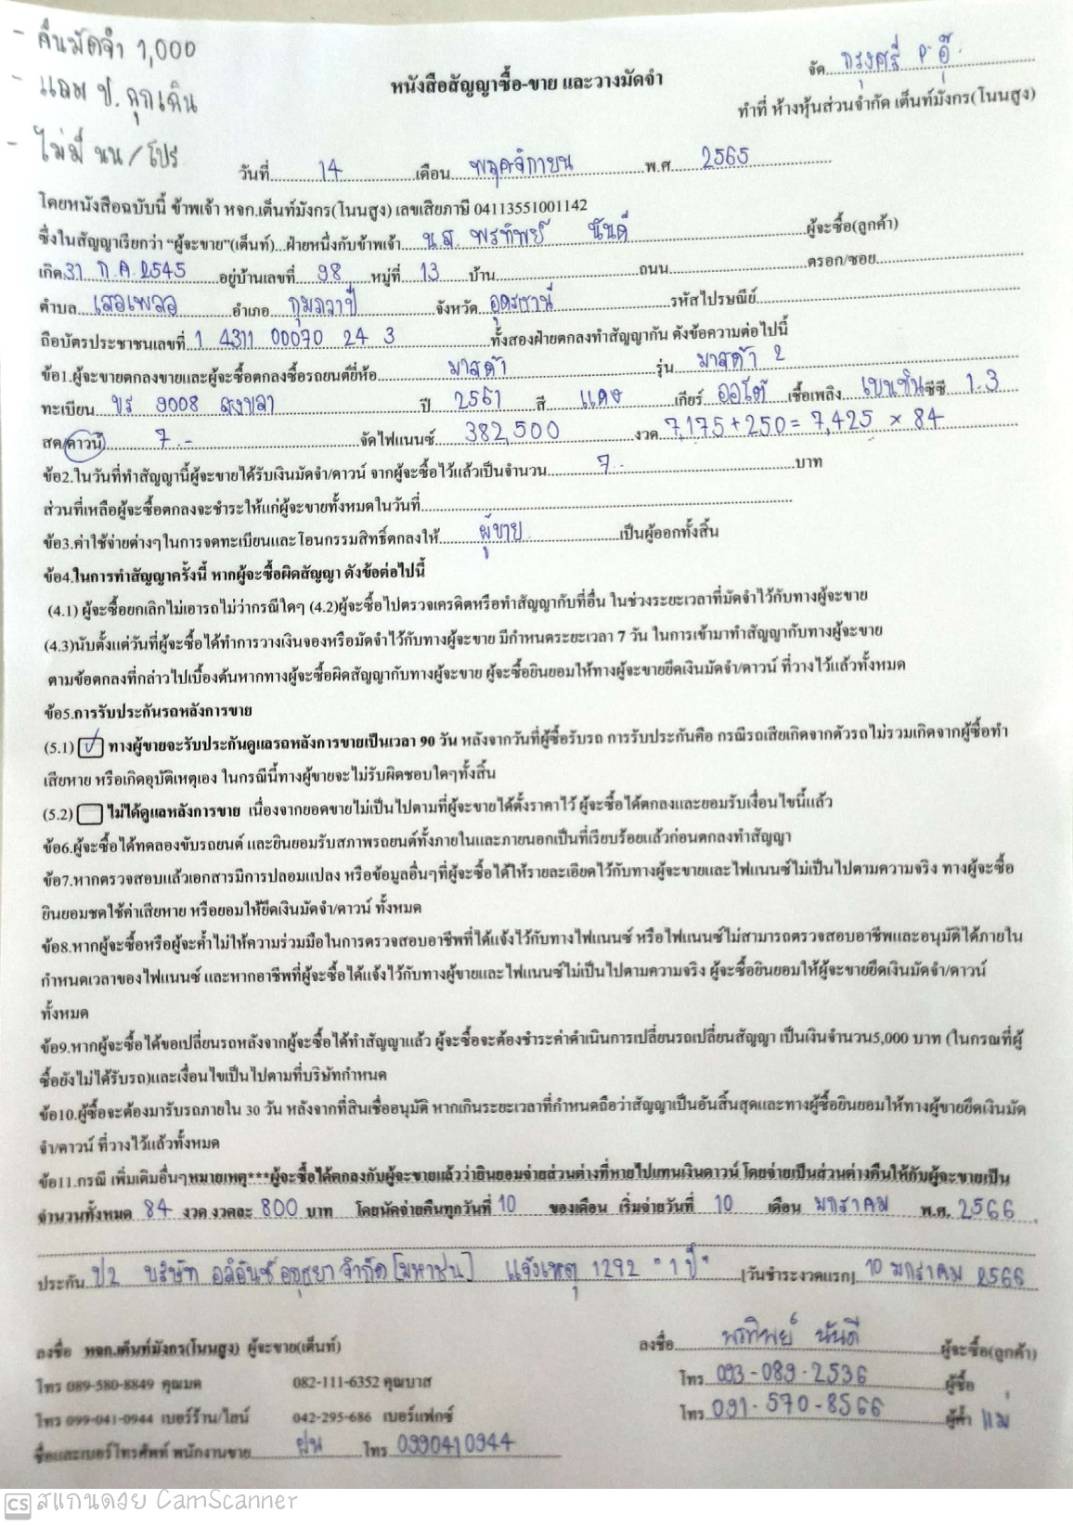 - คืนมัดจำ 1,000
- แถม ป. ฉุกเฉิน
- ไม่มี นน/โปร
จัด กรุงศรี P อุ๊
หนังสือสัญญาซื้อ-ขาย และวางมัดจำ
ทำที่ ห้างหุ้นส่วนจำกัด เต็นท์มังกร(โนนสูง)
วันที่ 14 เดือน พฤศจิกายน พ.ศ. 2565
โดยหนังสือฉบับนี้ ข้าพเจ้า หจก.เต็นท์มังกร(โนนสูง) เลขเสียภาษี 04113551001142
ซึ่งในสัญญาเรียกว่า "ผู้จะขาย"(เต็นท์)...ฝ่ายหนึ่งกับข้าพเจ้า น.ส. พรทิพย์ นันดี ผู้จะซื้อ(ลูกค้า)
เกิด 31 ก.ค. 2545 อยู่บ้านเลขที่ 98 หมู่ที่ 13 บ้าน ถนน ตรอก/ซอย
ตำบล เสอเพลอ อำเภอ กุมภวาปี จังหวัด อุดรธานี รหัสไปรษณีย์
ถือบัตรประชาชนเลขที่ 1 4311 00070 24 3 ทั้งสองฝ่ายตกลงทำสัญญากัน ดังข้อความต่อไปนี้
ข้อ1.ผู้จะขายตกลงขายและผู้จะซื้อตกลงซื้อรถยนต์ยี่ห้อ มาสด้า รุ่น มาสด้า 2
ทะเบียน ขร 9008 สงขลา ปี 2561 สี แดง เกียร์ ออโต้ เชื้อเพลิง เบนซิน ซีซี 1.3
สด/ดาวน์ 7.- จัดไฟแนนซ์ 382,500 งวด 7,175+250 = 7,425 × 84
ข้อ2.ในวันที่ทำสัญญานี้ผู้จะขายได้รับเงินมัดจำ/ดาวน์ จากผู้จะซื้อไว้แล้วเป็นจำนวน 7.- บาท
ส่วนที่เหลือผู้จะซื้อตกลงจะชำระให้แก่ผู้จะขายทั้งหมดในวันที่
ข้อ3.ค่าใช้จ่ายต่างๆในการจดทะเบียนและโอนกรรมสิทธิ์ตกลงให้ ผู้ขาย เป็นผู้ออกทั้งสิ้น
ข้อ4.ในการทำสัญญาครั้งนี้ หากผู้จะซื้อผิดสัญญา ดังข้อต่อไปนี้
(4.1) ผู้จะซื้อยกเลิกไม่เอารถไม่ว่ากรณีใดๆ (4.2)ผู้จะซื้อไปตรวจเครดิตหรือทำสัญญากับที่อื่น ในช่วงระยะเวลาที่มัดจำไว้กับทางผู้จะขาย
(4.3)นับตั้งแต่วันที่ผู้จะซื้อได้ทำการวางเงินจองหรือมัดจำไว้กับทางผู้จะขาย มีกำหนดระยะเวลา 7 วัน ในการเข้ามาทำสัญญากับทางผู้จะขาย
ตามข้อตกลงที่กล่าวไปเบื้องต้นหากทางผู้จะซื้อผิดสัญญากับทางผู้จะขาย ผู้จะซื้อยินยอมให้ทางผู้จะขายยึดเงินมัดจำ/ดาวน์ ที่วางไว้แล้วทั้งหมด
ข้อ5.การรับประกันรถหลังการขาย
(5.1) ทางผู้ขายจะรับประกันดูแลรถหลังการขายเป็นเวลา 90 วัน หลังจากวันที่ผู้ซื้อรับรถ การรับประกันคือ กรณีรถเสียเกิดจากตัวรถไม่รวมเกิดจากผู้ซื้อทำ
เสียหาย หรือเกิดอุบัติเหตุเอง ในกรณีนี้ทางผู้ขายจะไม่รับผิดชอบใดๆทั้งสิ้น
(5.2) ไม่ได้ดูแลหลังการขาย เนื่องจากยอดขายไม่เป็นไปตามที่ผู้จะขายได้ตั้งราคาไว้ ผู้จะซื้อได้ตกลงและยอมรับเงื่อนไขนี้แล้ว
ข้อ6.ผู้จะซื้อได้ทดลองขับรถยนต์ และยินยอมรับสภาพรถยนต์ทั้งภายในและภายนอกเป็นที่เรียบร้อยแล้วก่อนตกลงทำสัญญา
ข้อ7.หากตรวจสอบแล้วเอกสารมีการปลอมแปลง หรือข้อมูลอื่นๆที่ผู้จะซื้อได้ให้รายละเอียดไว้กับทางผู้จะขายและไฟแนนซ์ไม่เป็นไปตามความจริง ทางผู้จะซื้อ
ยินยอมชดใช้ค่าเสียหาย หรือยอมให้ยึดเงินมัดจำ/ดาวน์ ทั้งหมด
ข้อ8.หากผู้จะซื้อหรือผู้จะค้ำไม่ให้ความร่วมมือในการตรวจสอบอาชีพที่ได้แจ้งไว้กับทางไฟแนนซ์ หรือไฟแนนซ์ไม่สามารถตรวจสอบอาชีพและอนุมัติได้ภายใน
กำหนดเวลาของไฟแนนซ์ และหากอาชีพที่ผู้จะซื้อได้แจ้งไว้กับทางผู้ขายและไฟแนนซ์ไม่เป็นไปตามความจริง ผู้จะซื้อยินยอมให้ผู้จะขายยึดเงินมัดจำ/ดาวน์
ทั้งหมด
ข้อ9.หากผู้จะซื้อได้ขอเปลี่ยนรถหลังจากผู้จะซื้อได้ทำสัญญาแล้ว ผู้จะซื้อจะต้องชำระค่าดำเนินการเปลี่ยนรถเปลี่ยนสัญญา เป็นเงินจำนวน5,000 บาท (ในกรณที่ผู้
ซื้อยังไม่ได้รับรถ)และเงื่อนไขเป็นไปตามที่บริษัทกำหนด
ข้อ10.ผู้ซื้อจะต้องมารับรถภายใน 30 วัน หลังจากที่สินเชื่ออนุมัติ หากเกินระยะเวลาที่กำหนดถือว่าสัญญาเป็นอันสิ้นสุดและทางผู้ซื้อยินยอมให้ทางผู้ขายยึดเงินมัด
จำ/ดาวน์ ที่วางไว้แล้วทั้งหมด
ข้อ11.กรณี เพิ่มเติมอื่นๆหมายเหตุ***ผู้จะซื้อได้ตกลงกับผู้จะขายแล้วว่ายินยอมจ่ายส่วนต่างที่หายไปแทนเงินดาวน์ โดยจ่ายเป็นส่วนต่างคืนให้กับผู้จะขายเป็น
จำนวนทั้งหมด 84 งวด งวดละ 800 บาท โดยนัดจ่ายคืนทุกวันที่ 10 ของเดือน เริ่มจ่ายวันที่ 10 เดือน มกราคม พ.ศ. 2566
ประกัน ป2 บริษัท อลิอันซ์ อยุธยา จำกัด [มหาชน] แจ้งเหตุ 1292 "1 ปี" [วันชำระงวดแรก] 10 มกราคม 2566
ลงชื่อ หจก.เต็นท์มังกร(โนนสูง) ผู้จะขาย(เต็นท์)
ลงชื่อ พรทิพย์ นันดี ผู้จะซื้อ(ลูกค้า)
โทร 089-580-8849 คุณมด 082-111-6352 คุณบาส
โทร 093-089-2536 ผู้ซื้อ
โทร 099-041-0944 เบอร์ร้าน/ไลน์ 042-295-686 เบอร์แฟกซ์
โทร 091-570-8566 ผู้ค้ำ แม่
ชื่อและเบอร์โทรศัพท์ พนักงานขาย ฝน โทร 0990410944
CS สแกนด้วย CamScanner